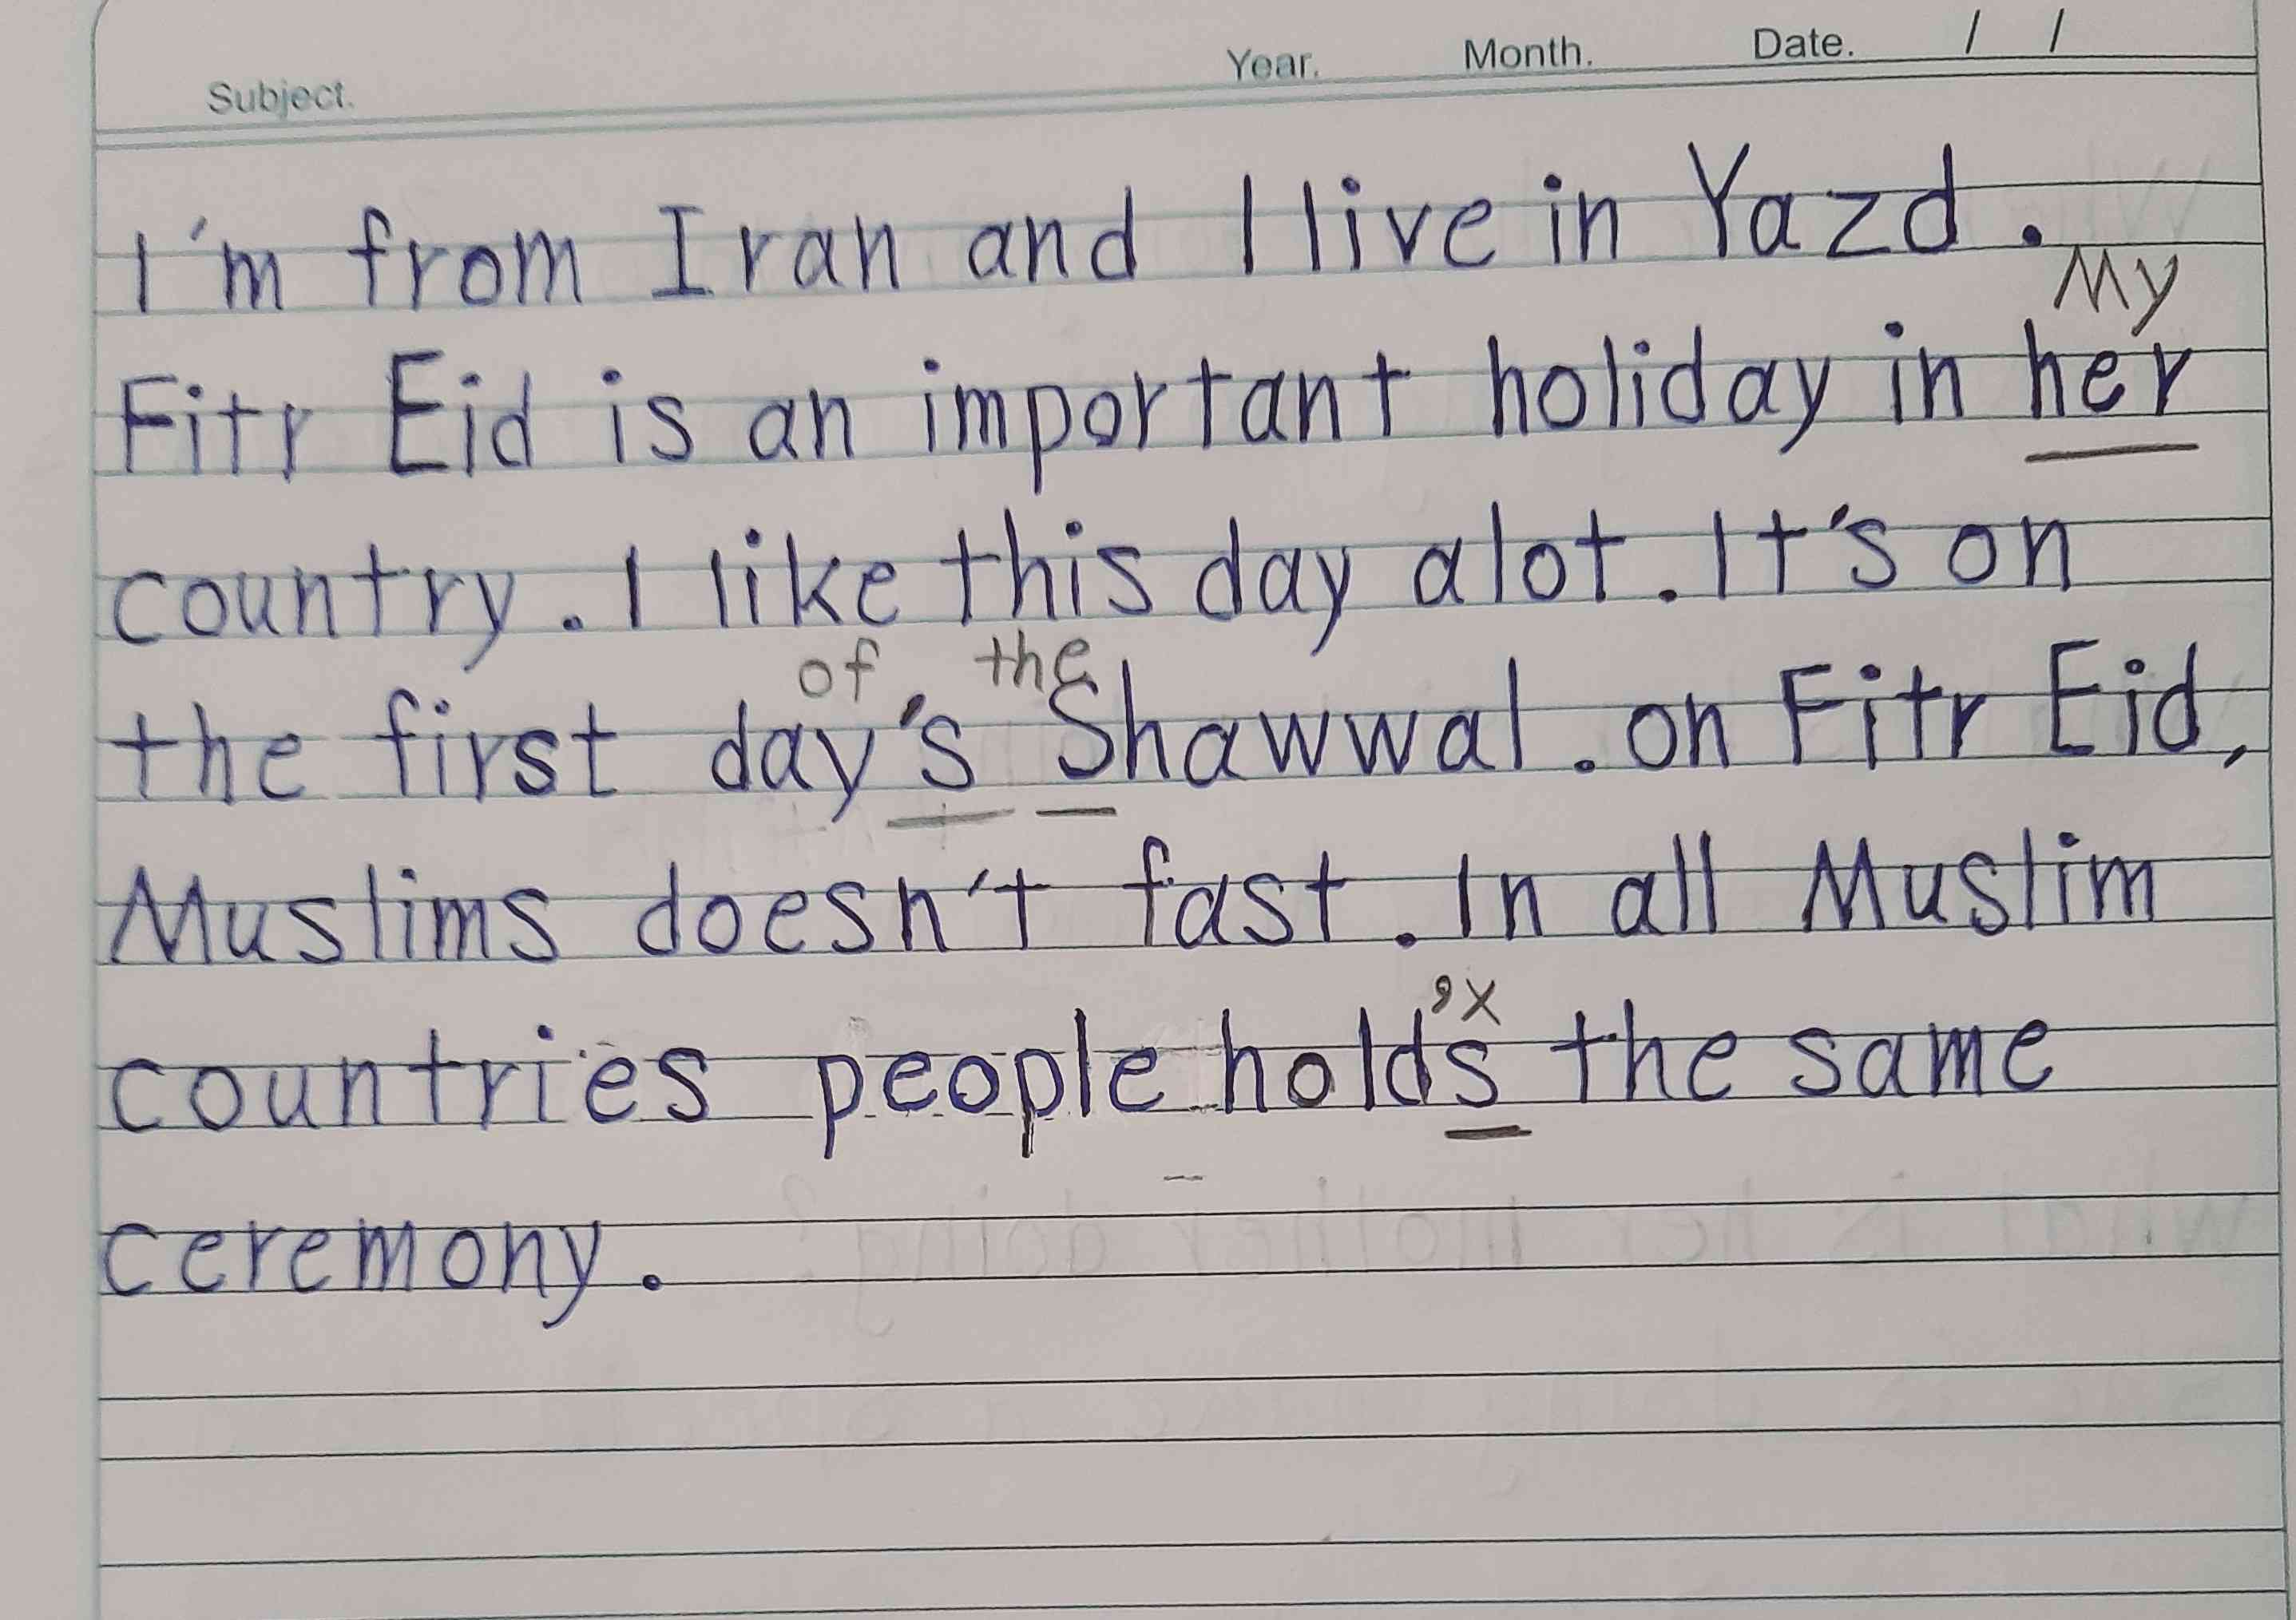 Subject. Year. Month. Date. / /
I'm from Iran and I live in Yazd.
My
Fitr Eid is an important holiday in her
country. I like this day alot. It's on
of the
the first day's Shawwal. on Fitr Eid,
Muslims doesn't fast. In all Muslim
, x
countries people holds the same
ceremony.